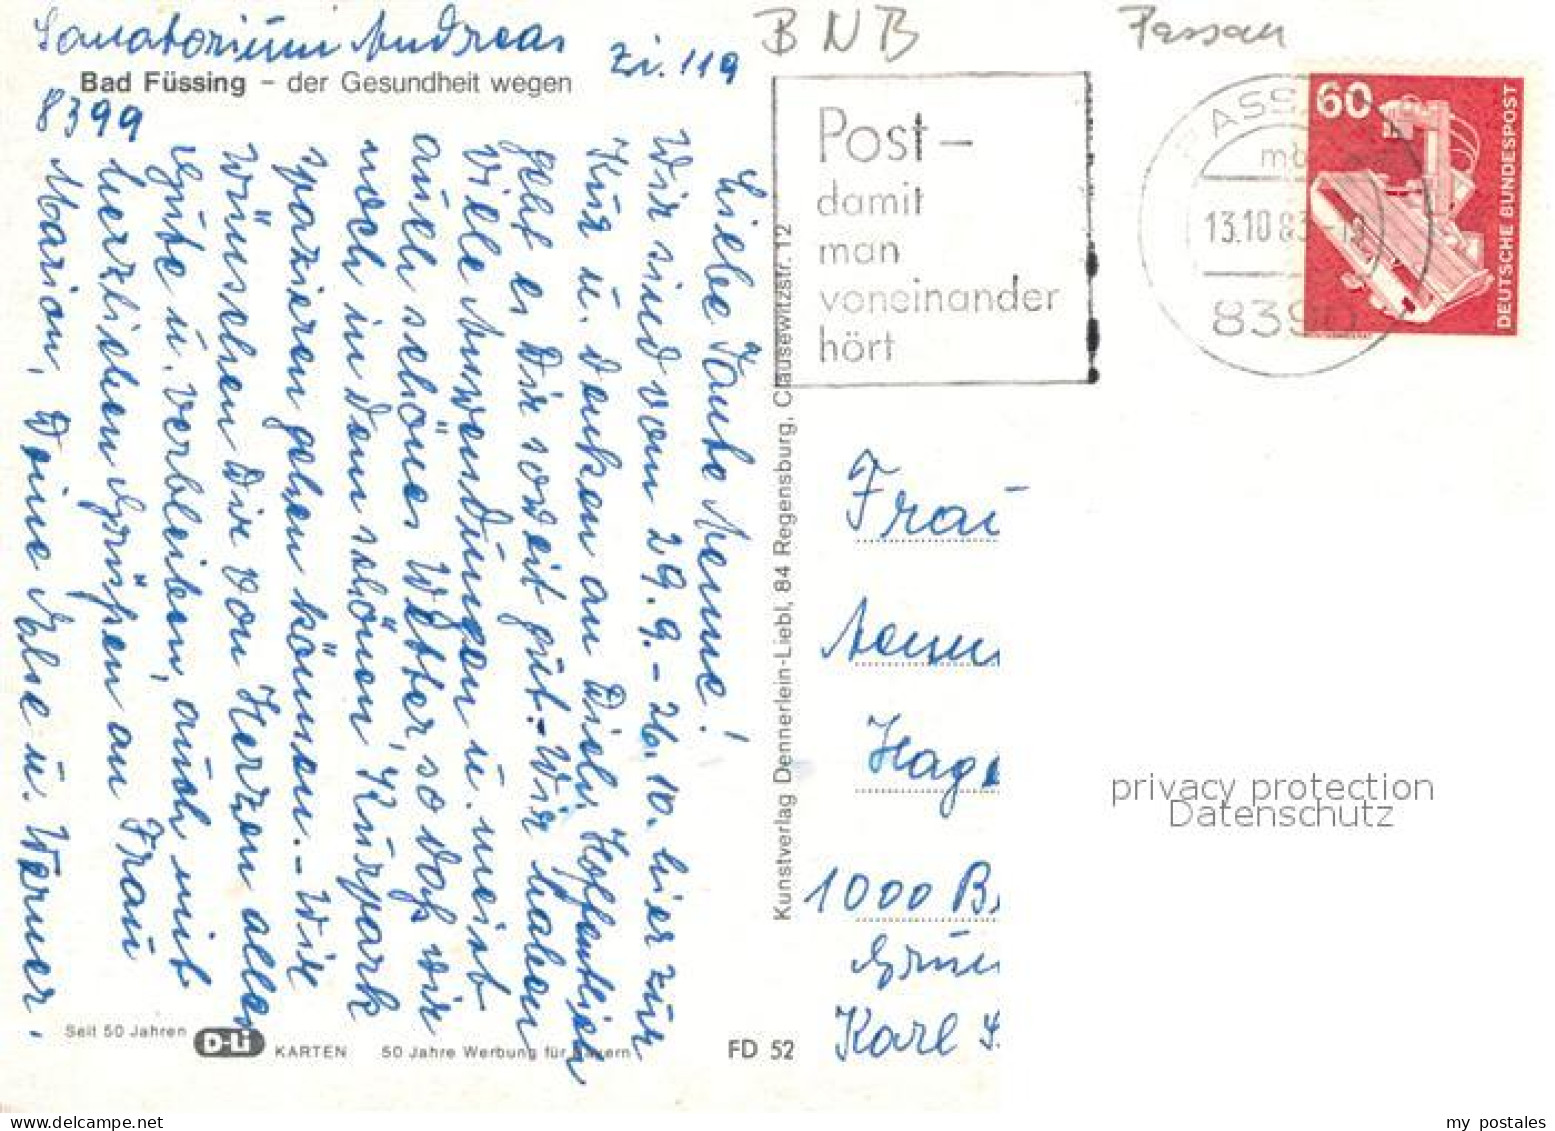 Sanatorium Andreas
Zi. 119
Bad Füssing – der Gesundheit wegen
8399
Liebe Tante Aenne!
Wir sind vom 29.9.-26.10. hier zur
Kur u. denken an Dich. Hoffentlich
geht es Dir soweit gut.- Wir haben
viele Anwendungen u. meist
auch schönes Wetter, so daß wir
noch in dem schönen Kurpark
spazieren gehen können.- Wir
wünschen Dir von Herzen alles
Gute u. verbleiben, auch mit
herzlichen Grüßen an Frau
Marion, Deine Ilse u. Werner.
Seit 50 Jahren D-Li KARTEN 50 Jahre Werbung für Bayern
FD 52
Kunstverlag Dennerlein-Liebl, 84 Regensburg, Clausewitzstr. 12
BNB
Passau
Post-
damit
man
voneinander
hört
PASS
13.10.83
8390
60
DEUTSCHE BUNDESPOST
Frau
Aenn
Hag
1000 B
Grün
Karl
privacy protection
Datenschutz
my postales